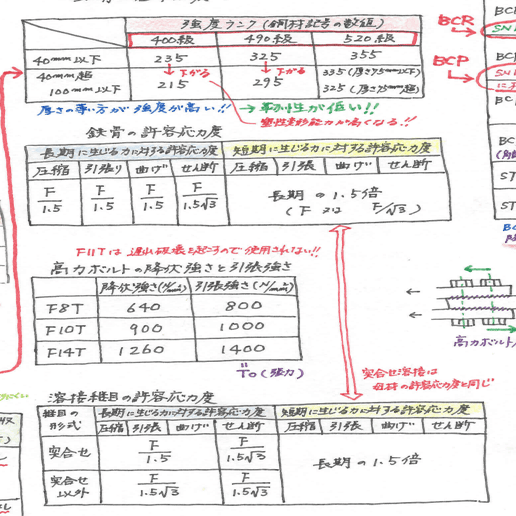 強度ランク(鋼材記号の数値)
400級 490級 520級
40mm以下 235 325 355
下がる 下がる
40mm超 100mm以下 215 295 335(厚さ75mm以下) 325(厚さ75mm超)
厚さの薄い方が強度が高い!! → 靭性が低い!!
塑性変形能力が高くなる!!
BCR
BCP
鉄骨の許容応力度
長期に生じる力に対する許容応力度 短期に生じる力に対する許容応力度
圧縮 引張り 曲げ せん断 圧縮 引張 曲げ せん断
F/1.5 F/1.5 F/1.5 F/1.5√3 長期の1.5倍
(F 又は F/√3)
F11Tは遅れ破壊を起こすので使用されない!!
高力ボルトの降伏強さと引張強さ
降伏強さ(N/mm²) 引張強さ(N/mm²)
F8T 640 800
F10T 900 1000
F14T 1260 1400
To(張力)
高力ボルト
突合せ溶接は
母材の許容応力度と同じ
溶接継目の許容応力度
継目の形式 長期に生じる力に対する許容応力度 短期に生じる力に対する許容応力度
圧縮 引張 曲げ せん断 圧縮 引張 曲げ せん断
突合せ F/1.5 F/1.5√3 長期の1.5倍
突合せ以外 F/1.5√3 F/1.5√3